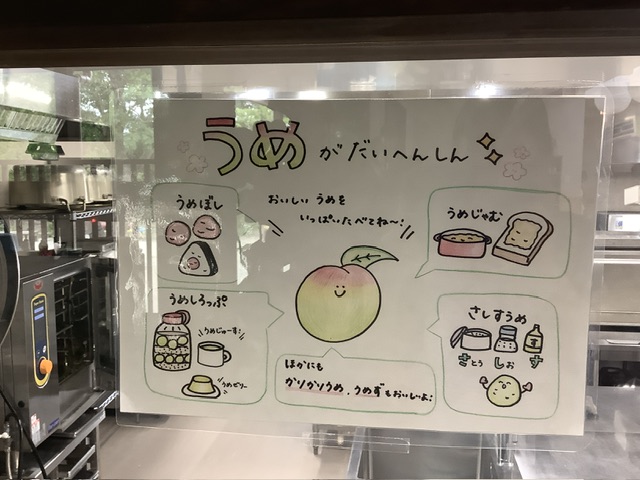 うめがだいへんしん
おいしい うめを
いっぱいたべてね～!
うめぼし
うめじゃむ
うめしろっぷ
うめじゅーす!
うめゼリー
さしすうめ
さとう しお す
ほかにも
かりかりうめ、うめずもおいしいよ!